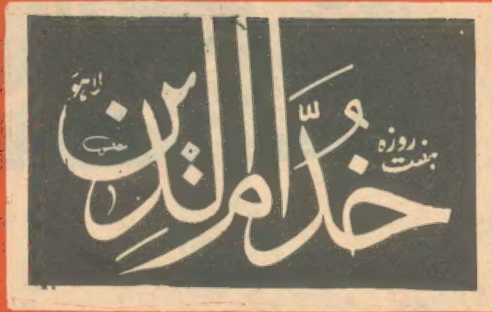 ہفت روزہ
خُدّام الدِّین
لاہور